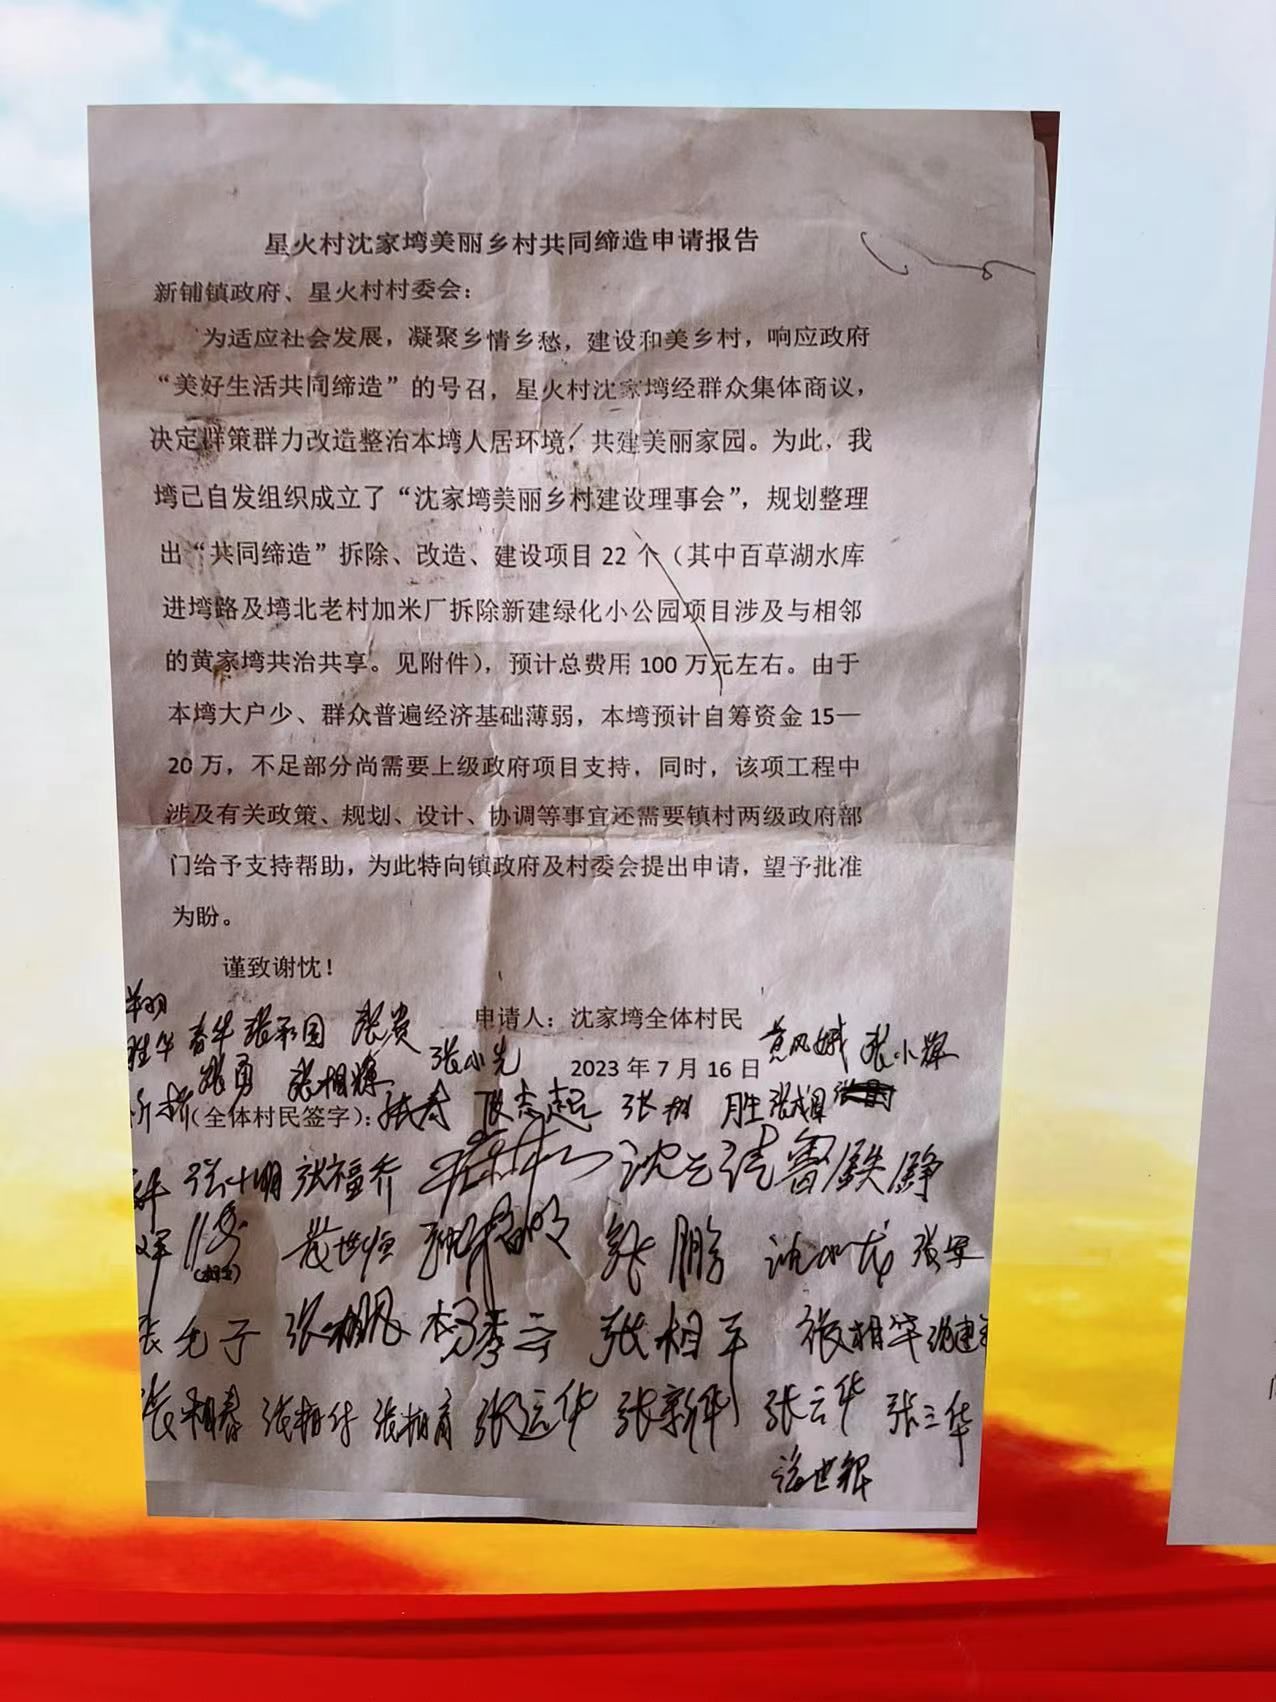 星火村沈家塆美丽乡村共同缔造申请报告
新铺镇政府、星火村村委会：
为适应社会发展，凝聚乡情乡愁，建设和美乡村，响应政府
“美好生活共同缔造”的号召，星火村沈家塆经群众集体商议，
决定群策群力改造整治本塆人居环境，共建美丽家园。为此，我
塆已自发组织成立了“沈家塆美丽乡村建设理事会”，规划整理
出“共同缔造”拆除、改造、建设项目22个（其中百草湖水库
进塆路及塆北老村加米厂拆除新建绿化小公园项目涉及与相邻
的黄家塆共治共享。见附件），预计总费用100万元左右。由于
本塆大户少、群众普遍经济基础薄弱，本塆预计自筹资金15—
20万，不足部分尚需要上级政府项目支持，同时，该项工程中
涉及有关政策、规划、设计、协调等事宜还需要镇村两级政府部
门给予支持帮助，为此特向镇政府及村委会提出申请，望予批准
为盼。
谨致谢忱！
申请人：沈家塆全体村民
张贵
2023年7月16日
张小先 张小辉
张勇 张相辉
（全体村民签字）：
张志起
张福乔
张鹏 张军
张相平
张相春 张运华 张新华 张云华 张三华